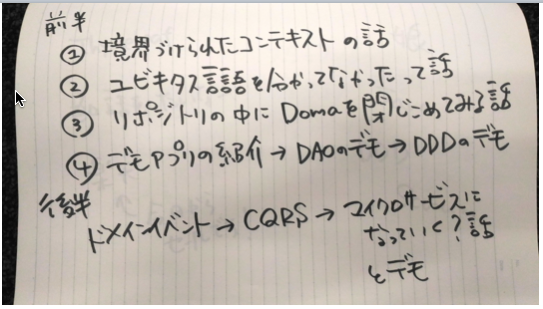 前半
① 境界づけられたコンテキストの話
② ユビキタス言語を分かってなかったって話
③ リポジトリの中にDomaを閉じこめてみる話
④ デモアプリの紹介→DAOのデモ→DDDのデモ
後半
ドメインイベント→CQRS→マイクロサービスに
なっていく?話
とデモ